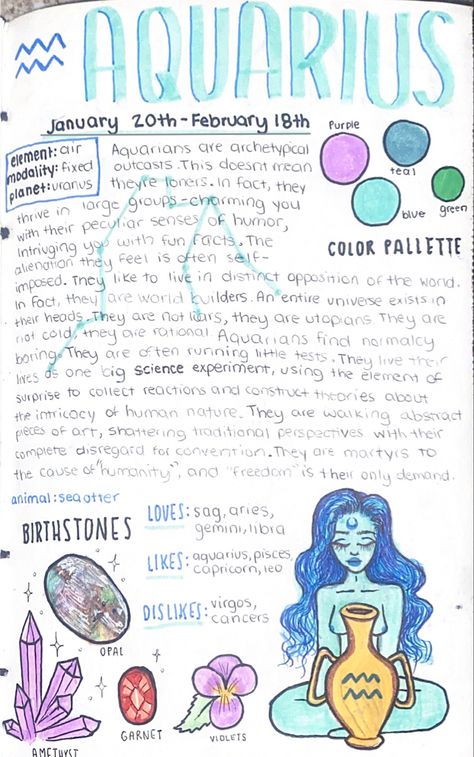 AQUARIUS
January 20th-February 18th
element: air
modality: fixed
planet: uranus
Aquarians are archetypical
outcasts. This doesnt mean
they're loners. In fact, they
thrive in large groups-charming you
with their peculiar senses of humor,
Intriuging you with fun facts. The
alienation they feel is often self-
imposed. They like to live in distinct opposition of the world.
In fact, they are world builders. An entire universe exists in
their heads. They are not liars, they are utopians They are
not cold, they are rational Aquarians find normalcy
boring. They are often running little tests. They live their
lives as one big science experiment, using the element of
surprise to collect reactions and construct theories about
the intricacy of human nature. They are walking abstract
pieces of art, shattering traditional perspectives with their
complete disregard for convention. They are martyrs to
the cause of "humanity", and "freedom" is their only demand.
Purple
teal
blue
green
COLOR PALLETTE
animal: sea otter
BIRTHSTONES
OPAL
AMETHYST
GARNET
VIOLETS
LOVES: sag, aries,
gemini, libra
LIKES: aquarius, pisces,
capricorn, leo
DISLIKES: virgos,
cancers